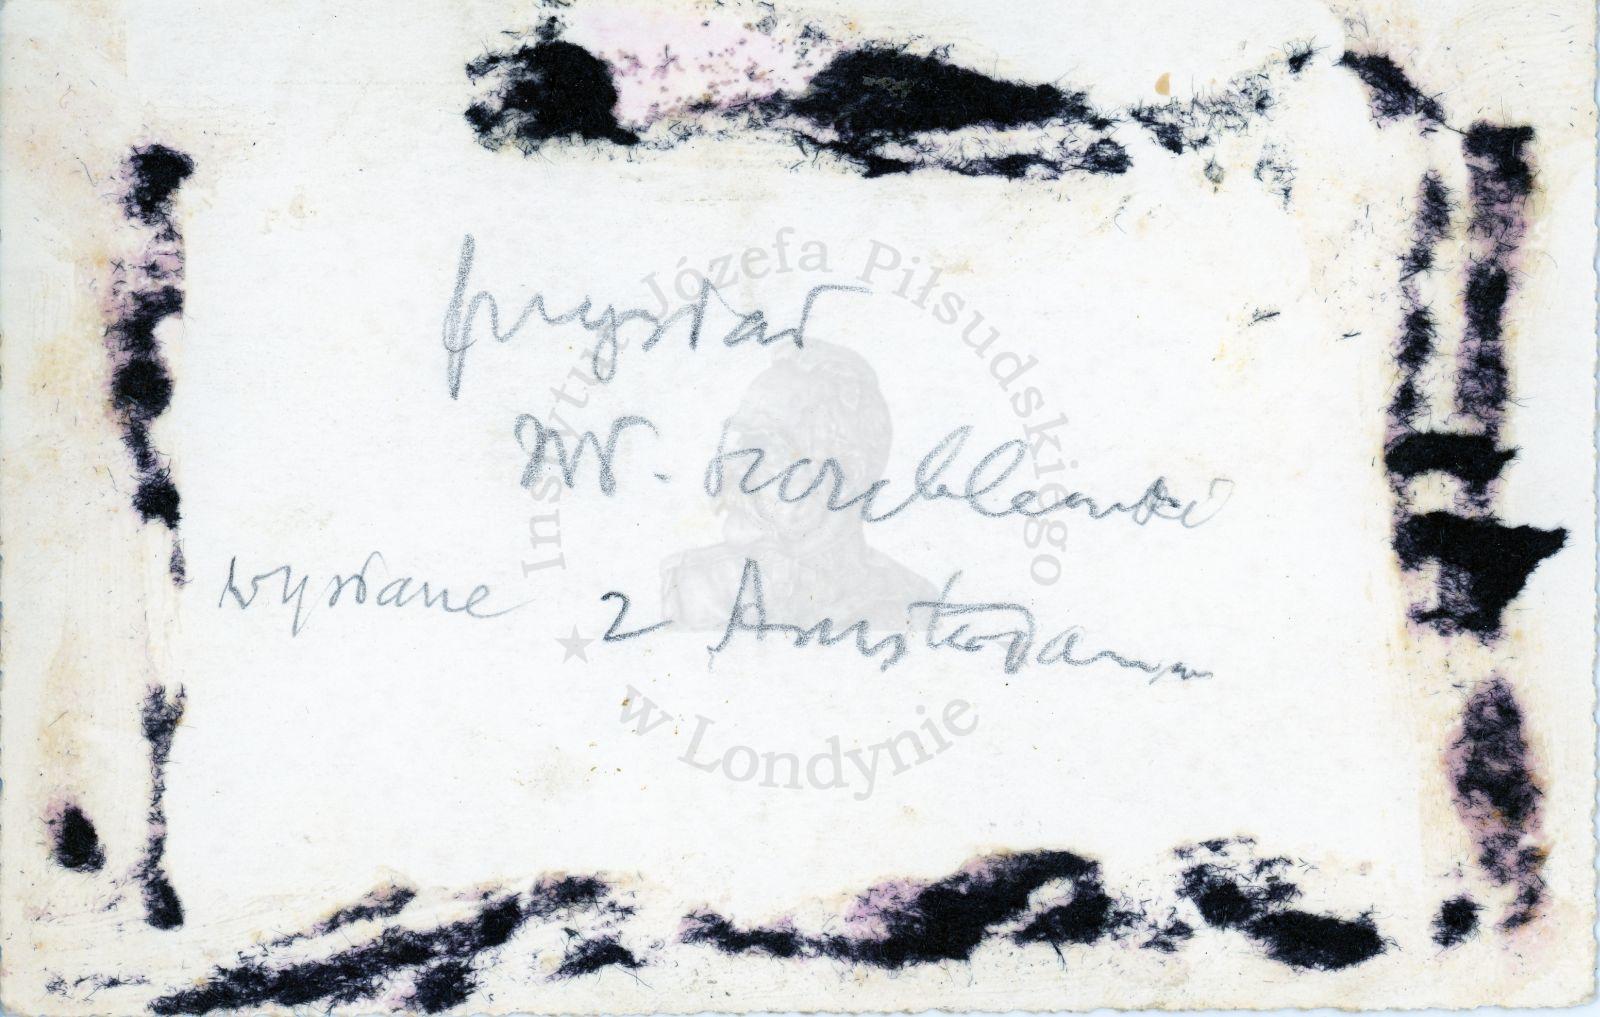 przysłał
W. Korabiewski
wysłane z Amsterdamu
Instytut Józefa Piłsudskiego
w Londynie